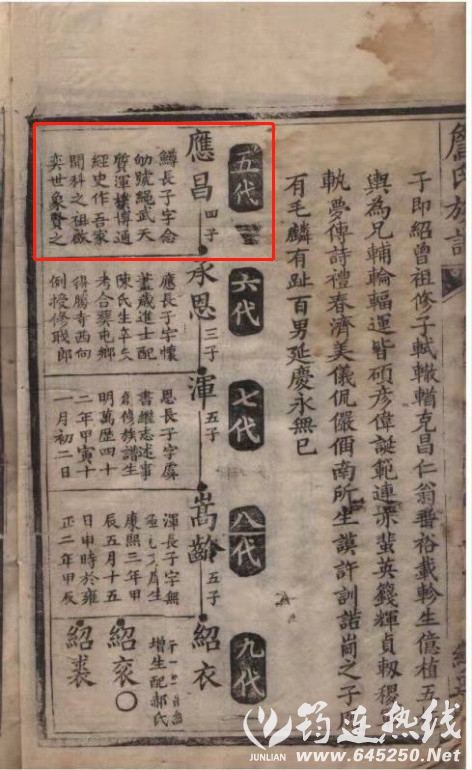 詹氏族譜
子即紹曾祖修子軾轍輶克昌仁翁晋裕載軫生億植五
輿為兄輔輪輻運皆碩彥偉誕範連蜚英籛輝貞軔
軌夢傳詩禮春濟美儀侃儼佃南所生謨許訓誥尚之子
有毛麟有趾百男延慶永無已
五代
六代
七代
八代
九代
應昌 四子
承恩 三子
渾 五子
嵩齡 五子
紹衣
鱒長子字念
劬號繩武天
質渾樸博通
經史作吾家
開科之祖啟
奕世象賢之
應長子字懷
藎歲進士配
陳氏生卒失
考合葵屯鄉
得勝寺西向
例授修職郎
恩長子字虞
書繼志述事
創修族譜生
明萬歷四十
二年甲寅十
一月初二日
渾長子字無
生
康熙三年甲
辰五月十五
日申時於雍
正二年甲辰
增生配郝氏
紹衮○
紹裘
筠连热线
JUNLIAN www.645250.Net